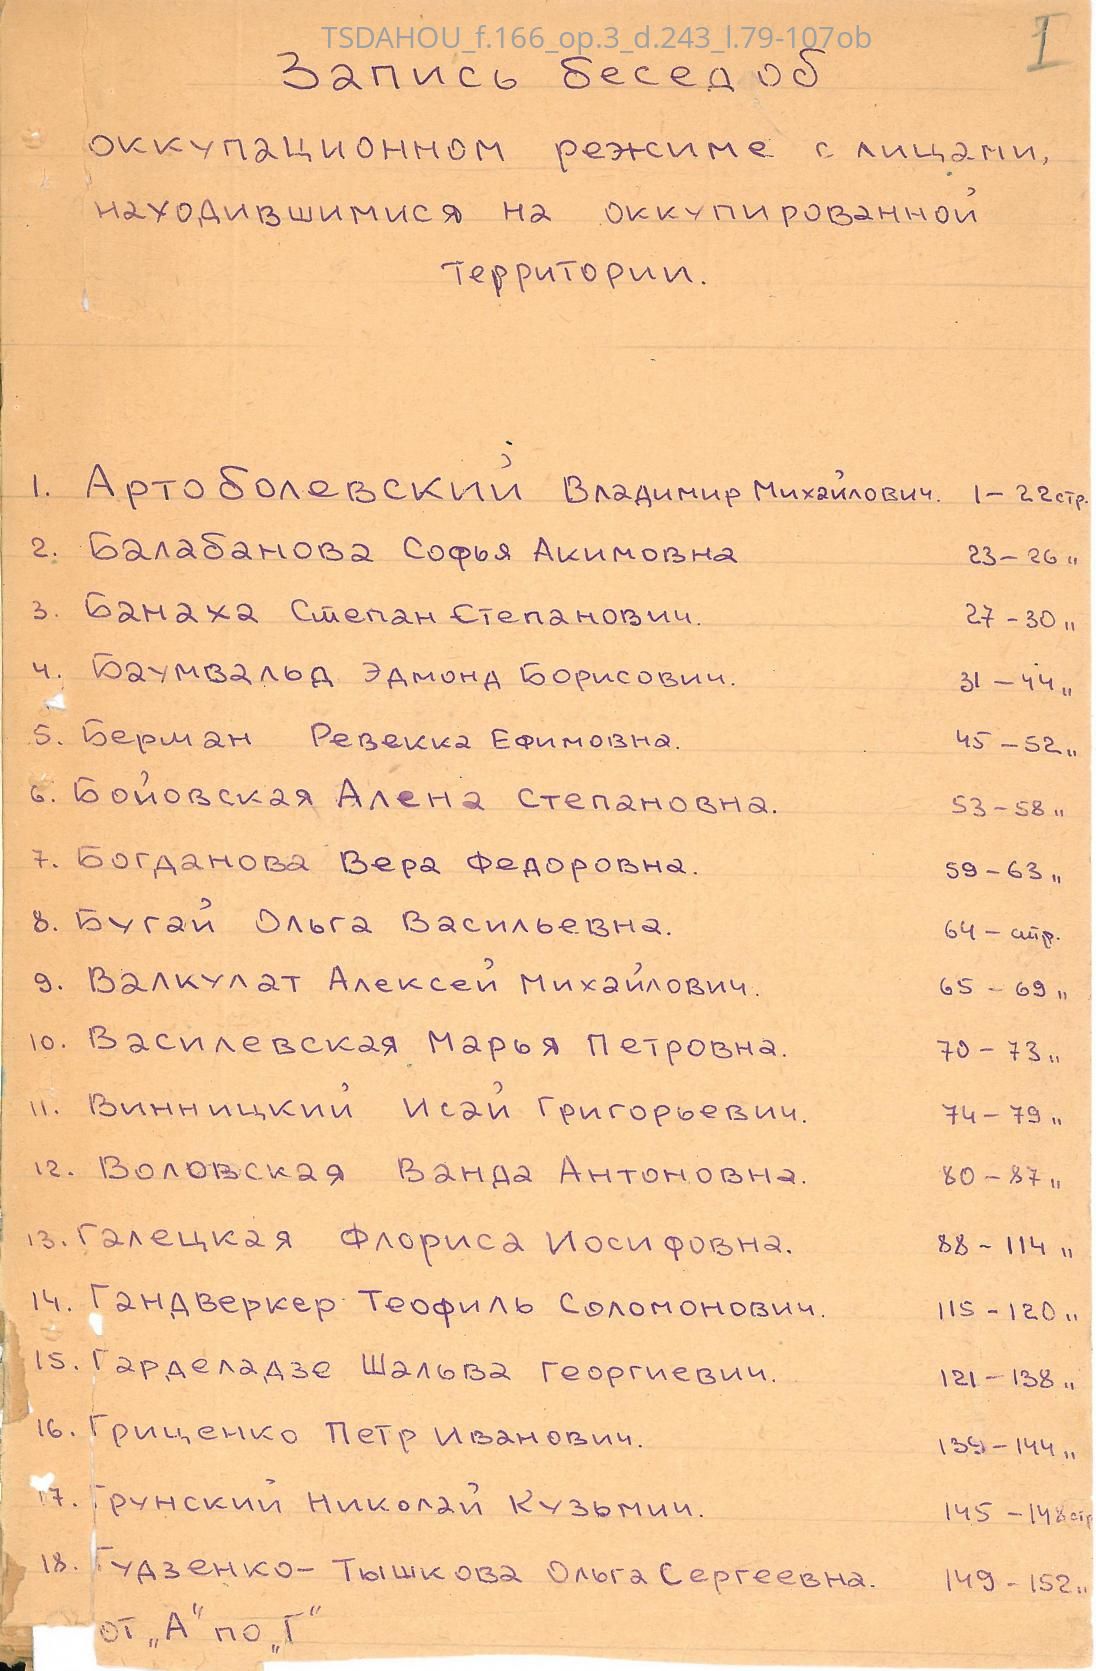 TSDAHOU_f.166_op.3_d.243_l.79-107ob
I
Запись бесед об
оккупационном режиме с лицами,
находившимися на оккупированной
территории.
1. Артоболевский Владимир Михайлович. 1-22 стр.
2. Балабанова Софья Акимовна 23-26 "
3. Банаха Степан Степанович. 27-30 "
4. Баумвальд Эдмонд Борисович. 31-44 "
5. Берман Ревекка Ефимовна. 45-52 "
6. Бойовская Алена Степановна. 53-58 "
7. Богданова Вера Федоровна. 59-63 "
8. Бугай Ольга Васильевна. 64- стр.
9. Валкулат Алексей Михайлович. 65-69 "
10. Василевская Марья Петровна. 70-73 "
11. Винницкий Исай Григорьевич. 74-79 "
12. Воловская Ванда Антоновна. 80-87 "
13. Галецкая Флориса Иосифовна. 88-114 "
14. Гандверкер Теофиль Соломонович. 115-120 "
15. Гарделадзе Шальва Георгиевич. 121-138 "
16. Гриценко Петр Иванович. 139-144 "
17. Грунский Николай Кузьмич. 145-148 стр
18. Гудзенко-Тышкова Ольга Сергеевна. 149-152 "
от „А" по „Г"